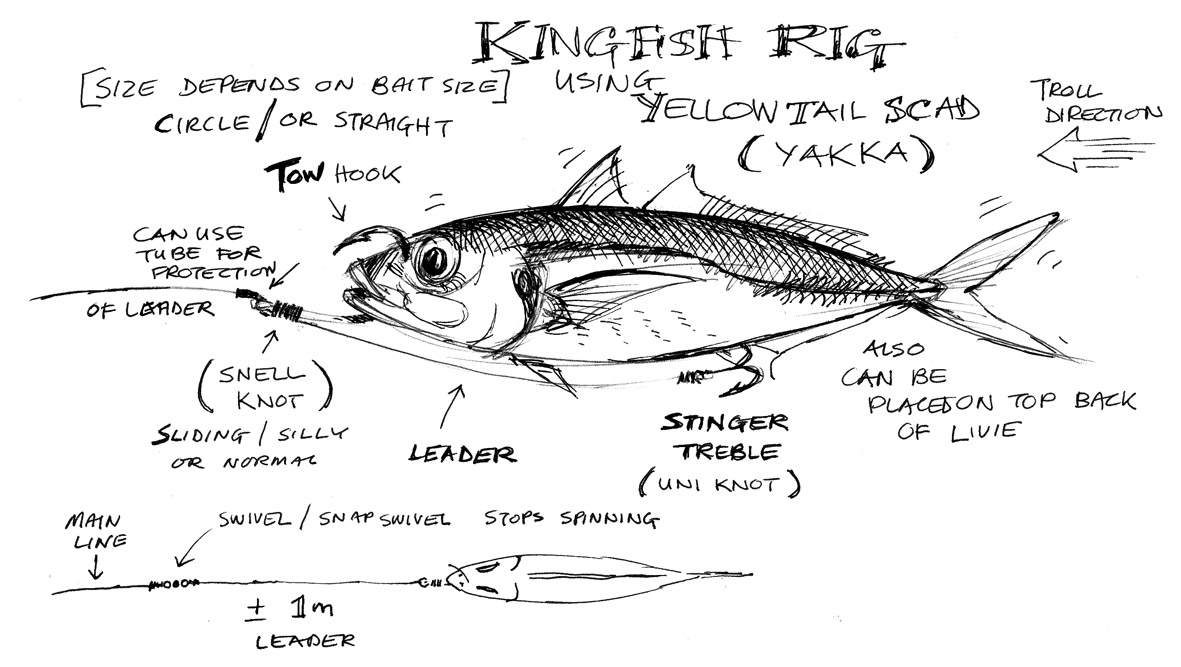 KINGFISH RIG
USING
YELLOWTAIL SCAD
(YAKKA)
[SIZE DEPENDS ON BAIT SIZE]
CIRCLE/OR STRAIGHT
TOW HOOK
TROLL
DIRECTION
CAN USE
TUBE FOR
PROTECTION
OF LEADER
(SNELL
KNOT)
SLIDING/SILLY
OR NORMAL
LEADER
STINGER
TREBLE
(UNI KNOT)
ALSO
CAN BE
PLACED ON TOP BACK
OF LIVIE
MAIN
LINE
SWIVEL/SNAP SWIVEL STOPS SPINNING
± 1m
LEADER